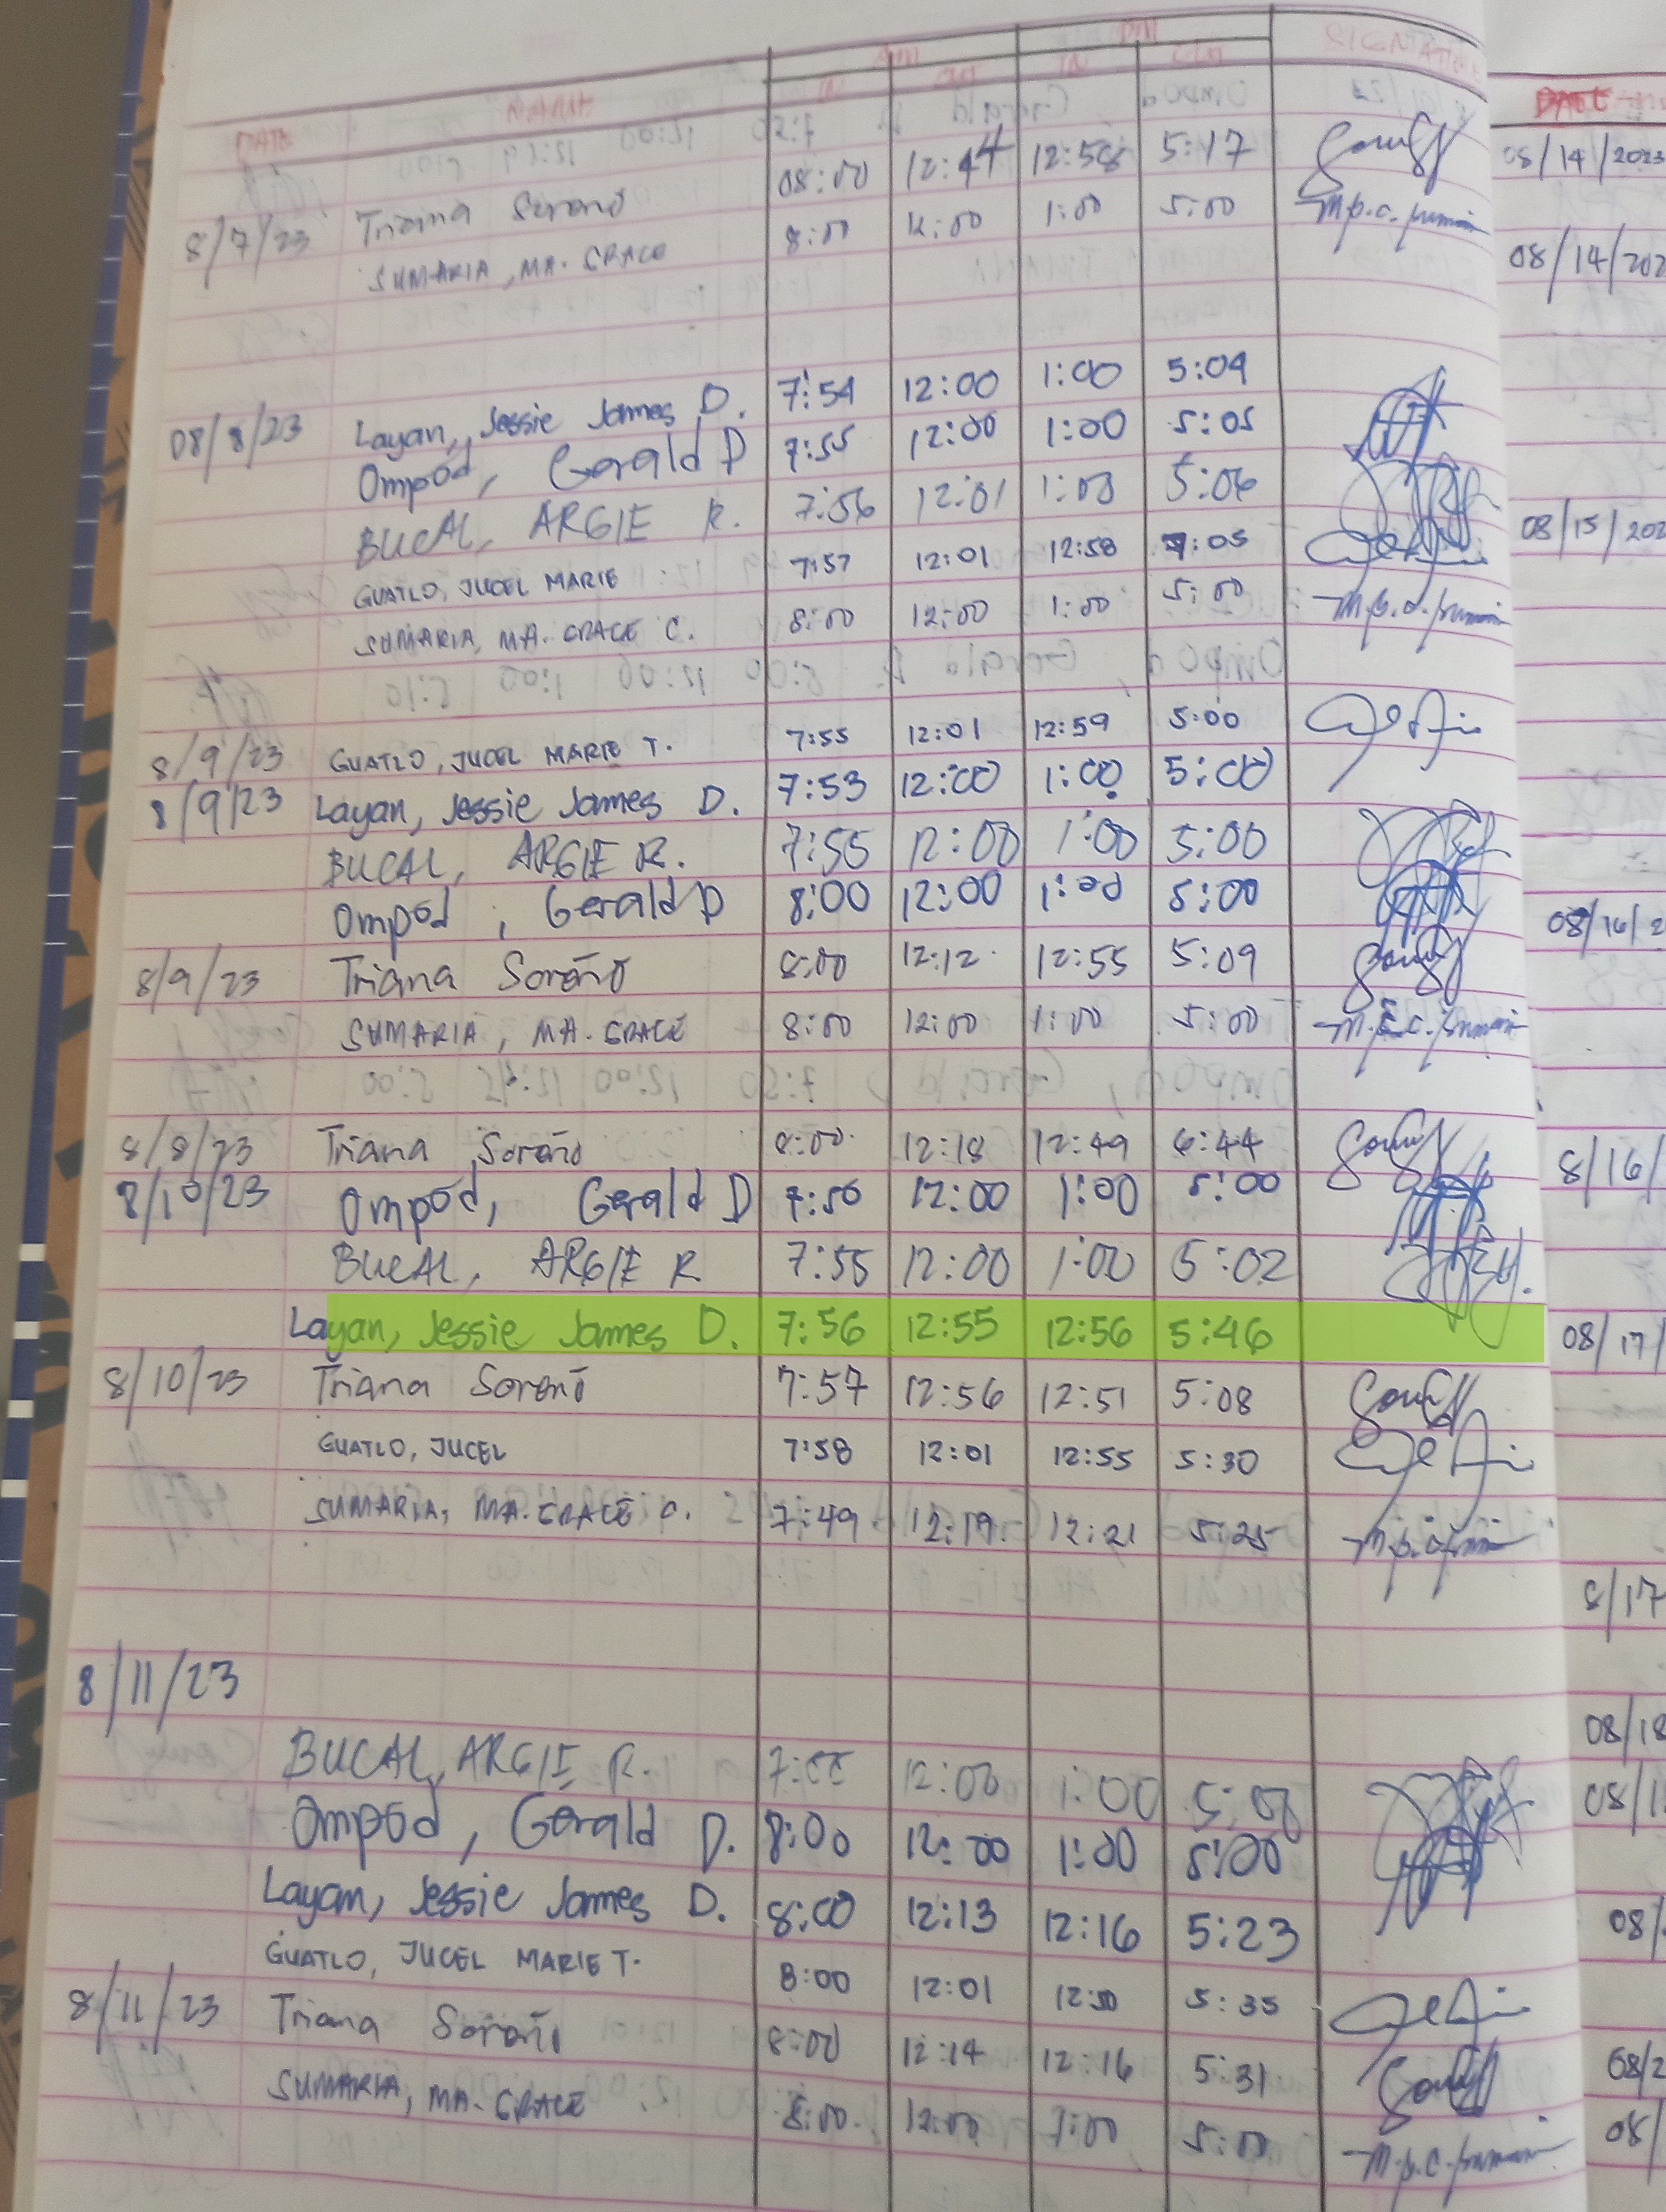 DATE
8/7/23 Triana Soroño 08:00 12:44 12:58 5:17
SUMARIA, MA. GRACE 8:00 12:00 1:00 5:00
08/8/23 Layan, Jessie James D. 7:54 12:00 1:00 5:04
Ompod, Gerald D 7:55 12:00 1:00 5:05
BUCAL, ARGIE R. 7:56 12:01 1:00 5:06
GUATLO, JUCEL MARIE 7:57 12:01 12:58 :05
SUMARIA, MA. GRACE C. 8:00 12:00 1:00 5:00
8/9/23 GUATLO, JUCEL MARIE T. 7:55 12:01 12:59 5:00
8/9/23 Layan, Jessie James D. 7:53 12:00 1:00 5:00
BUCAL, ARGIE R. 7:55 12:00 1:00 5:00
Ompod, Gerald D 8:00 12:00 1:00 5:00
8/9/23 Triana Soroño 8:00 12:12 12:55 5:09
SUMARIA, MA. GRACE 8:00 12:00 1:00 5:00
8/8/23 Triana Soroño 8:00 12:18 12:49 6:44
8/10/23 Ompod, Gerald D 7:50 12:00 1:00 5:00
BUCAL, ARGIE R 7:55 12:00 1:00 5:02
Layan, Jessie James D. 7:56 12:55 12:56 5:46
8/10/23 Triana Soroño 7:57 12:56 12:51 5:08
GUATLO, JUCEL 7:58 12:01 12:55 5:30
SUMARIA, MA. GRACE C. 7:49 12:19 12:21 5:25
8/11/23
BUCAL, ARGIE R. 12:00 1:00
Ompod, Gerald D. 8:00 12:00 1:00 5:00
Layan, Jessie James D. 8:00 12:13 12:16 5:23
GUATLO, JUCEL MARIE T. 8:00 12:01 12:50 5:35
8/11/23 Triana Soroño 8:00 12:14 12:16 5:31
SUMARIA, MA. GRACE 8:00 12:00 1:00 5:00
DATE
08/14/2023
08/14/202
08/15/202
08/16/2
8/16/
08/17/
8/17
08/18
08/1
08/
08/2
08/